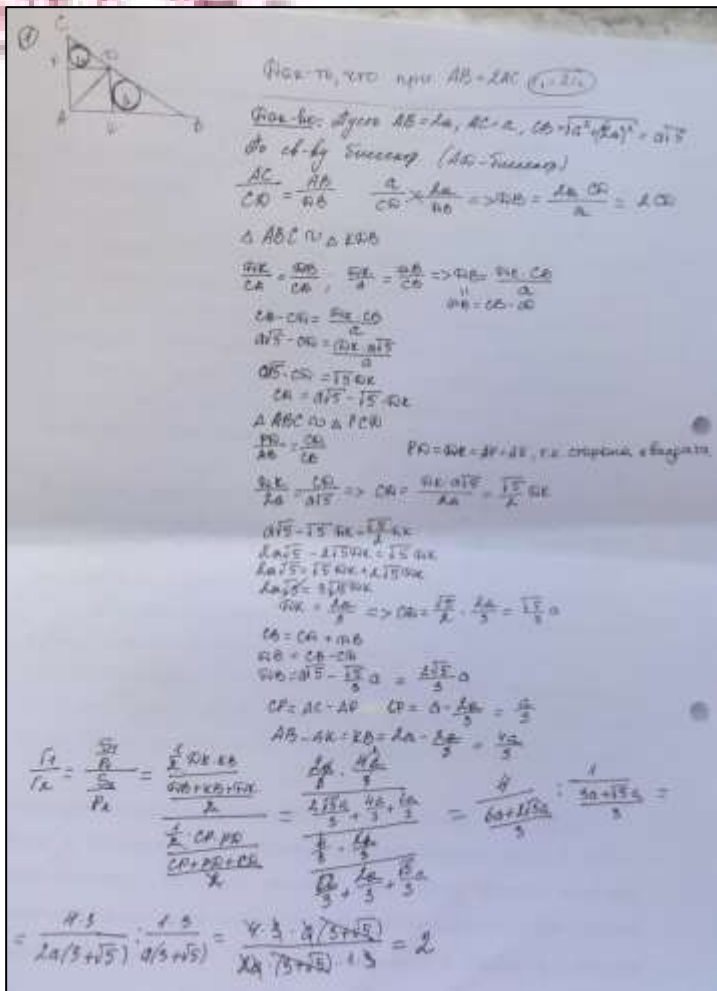 ①
C
P
D
A
K
B
Док-ть, что при AB=2AC r₁=2r₂
Док-во: Пусть AB=2a, AC=a, CB=√(a²+(2a)²)=a√5
По св-ву биссект (AD-биссект)
AC/CD = AB/DB   a/CD = 2a/DB => DB = 2a·CD/a = 2CD
△ABC ∾ △KDB
DK/CA = DB/CB; DK/a = DB/CB => DB = DK·CB/a
DB = CB-CD
CB-CD = DK·CB/a
a√5-CD = DK·a√5/a
a√5-CD = √5DK
CD = a√5-√5·DK
△ABC ∾ △PCD
PD/AB = CD/CB   PD=DK=AP=AK, т.к. сторона квадрата
DK/2a = CD/a√5 => CD = DK·a√5/2a = √5/2 DK
a√5-√5DK=√5/2 DK
2a√5-2√5DK=√5DK
2a√5=√5DK+2√5DK
2a√5=3√5DK
DK = 2a/3 => CD = √5/2 · 2a/3 = √5/3 a
CB = CD+DB
DB = CB-CD
DB=a√5-√5/3 a = 2√5/3 a
CP=AC-AP   CP=a-2a/3 = a/3
AB-AK=KB=2a-2a/3 = 4a/3
r₁/r₂ = (S₁/P₁)/(S₂/P₂) = (1/2 DK·KB/((DB+KB+DK)/2))/(1/2 CP·PD/((CP+PD+CD)/2)) = (2a/3·4a/3/(2√5a/3+4a/3+2a/3))/(a/3·2a/3/(a/3+2a/3+√5/3 a)) = 4/((6a+2√5a)/3) : 1/((3a+√5a)/3) =
= 4·3/(2a(3+√5)) : 1·3/(a(3+√5)) = 4·3·a(3+√5)/(2a(3+√5)·1·3) = 2